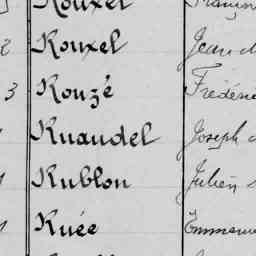 Rouxel
2 Rouxel Jean
3 Rouzé Frédéric
Ruaudel Joseph
Rublon Julien
Ruée Emmanuel